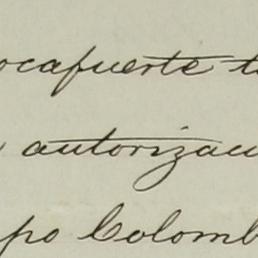 ocafuerte t
autorizac
po Colomb